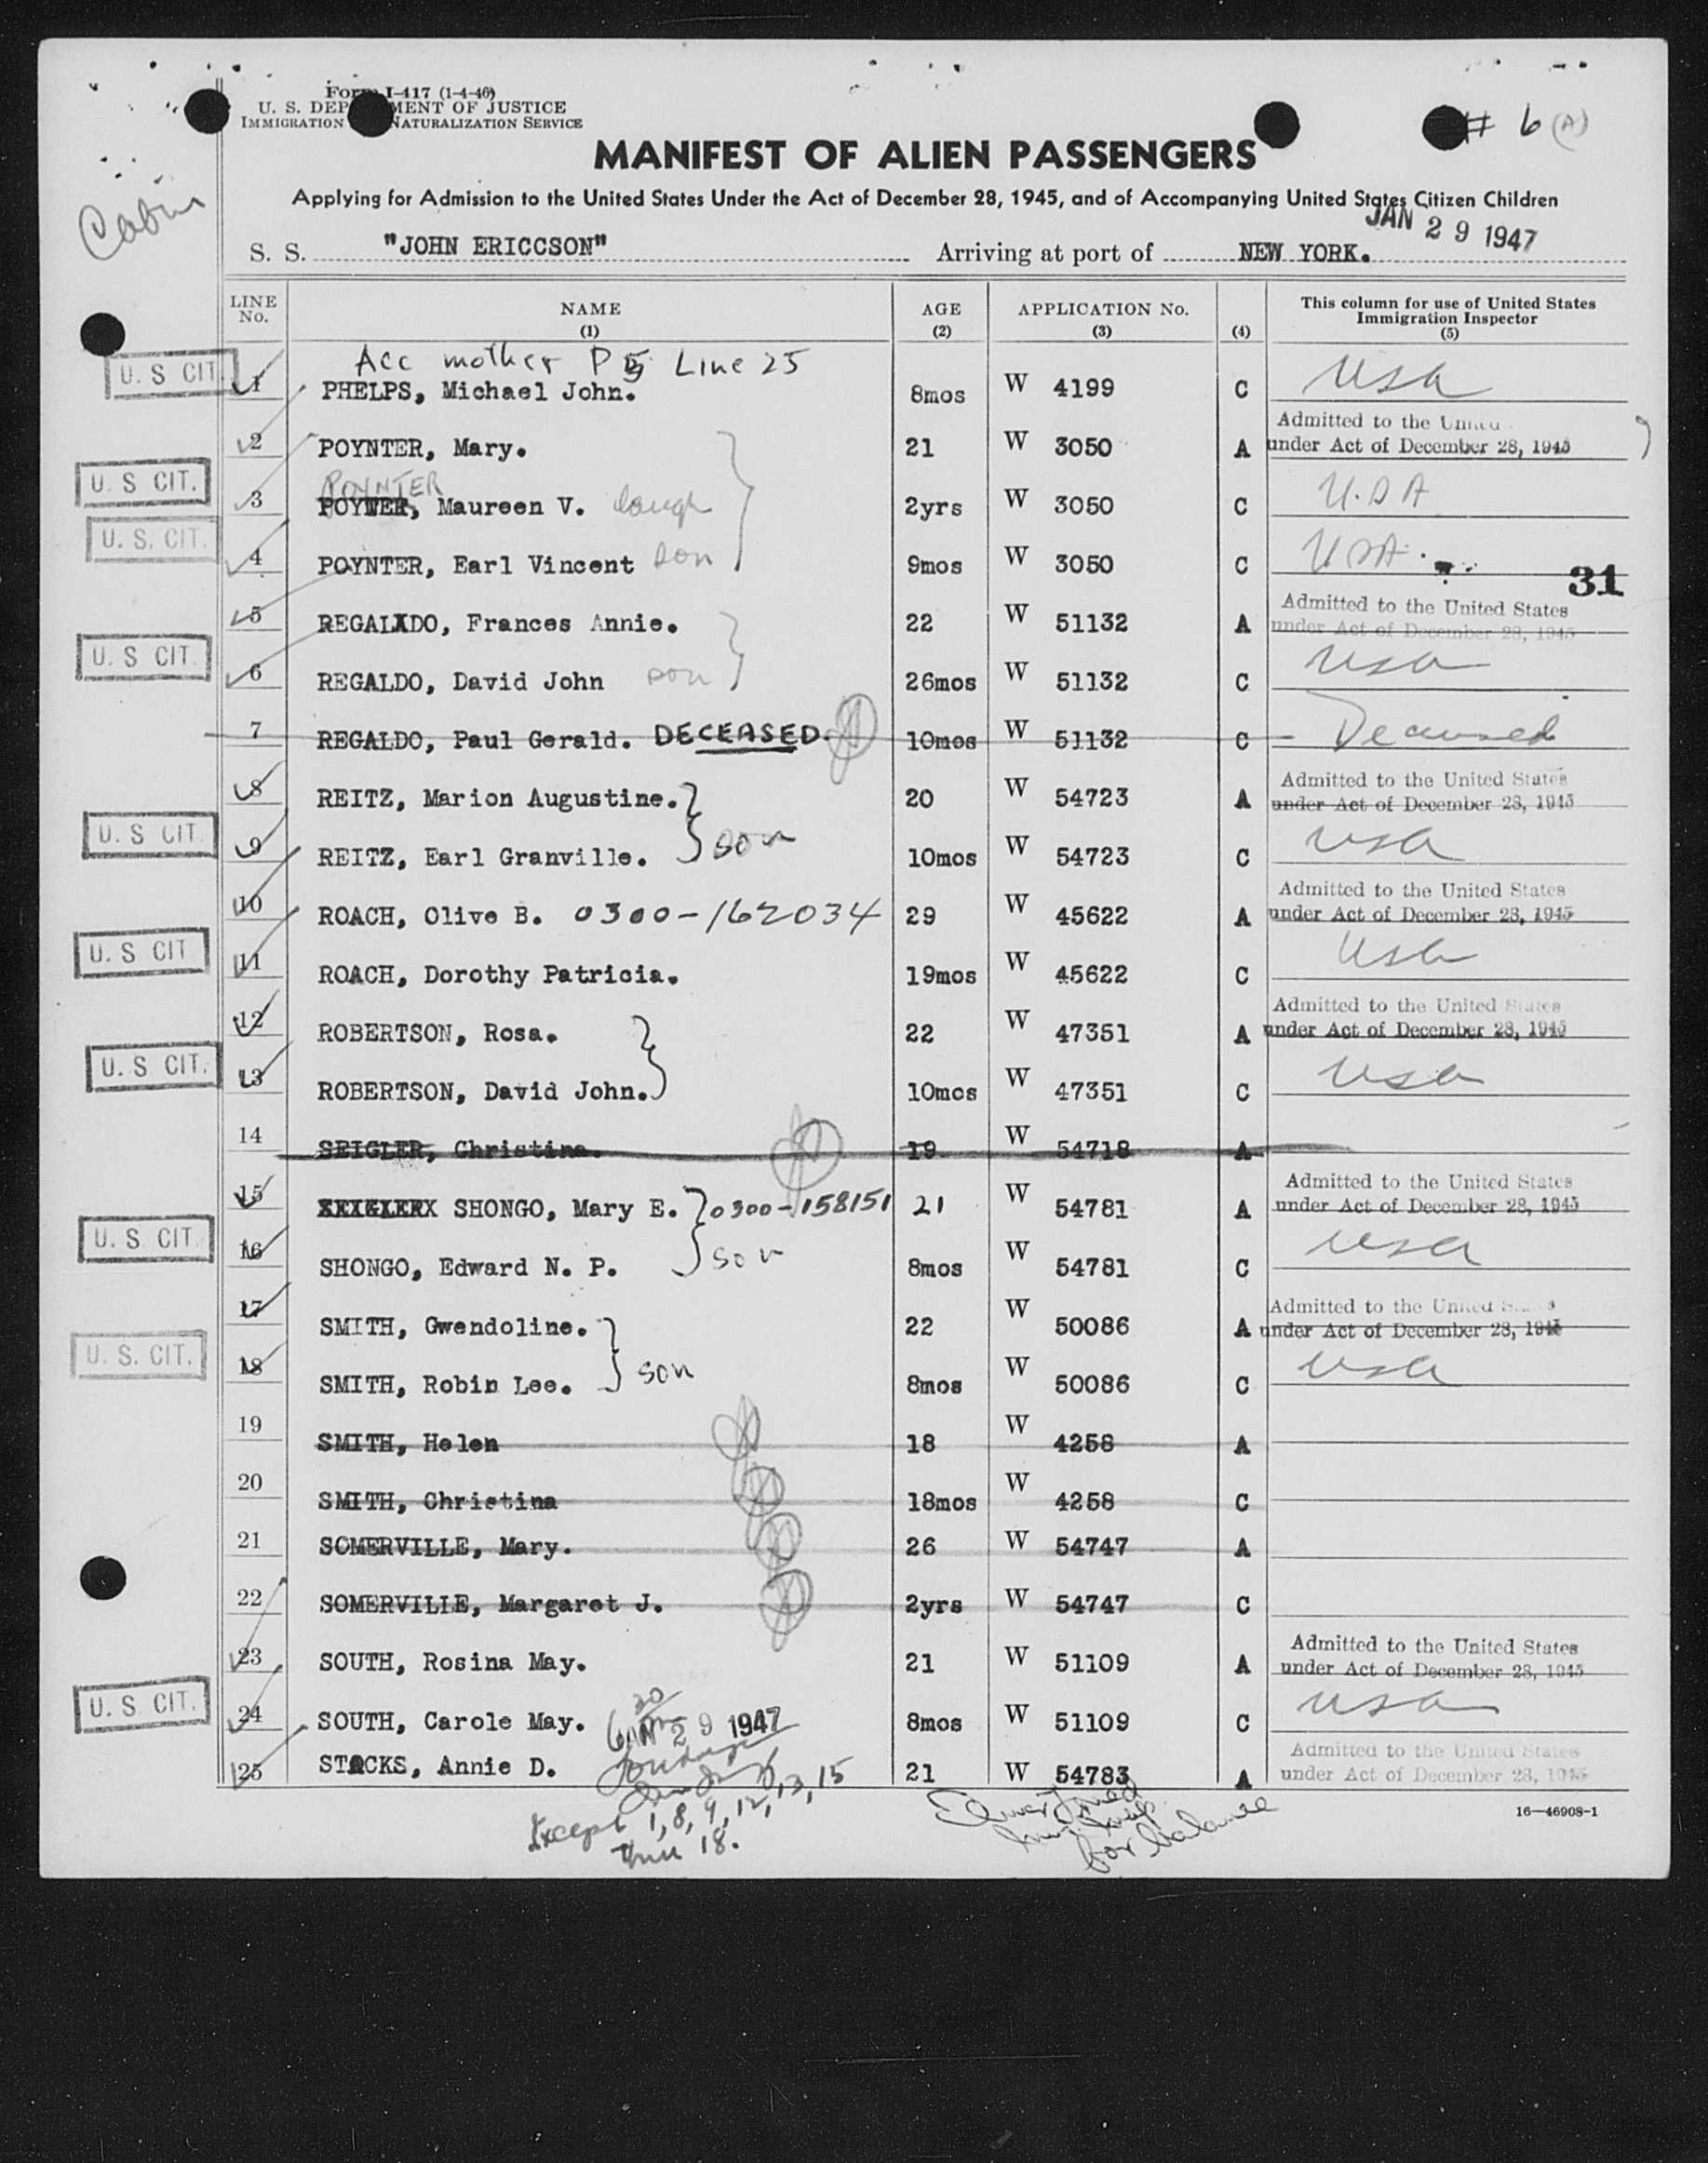 Form I-417 (1-4-46)
U. S. DEP MENT OF JUSTICE
IMMIGRATION NATURALIZATION SERVICE
# 6 (A)
MANIFEST OF ALIEN PASSENGERS
Applying for Admission to the United States Under the Act of December 28, 1945, and of Accompanying United States Citizen Children
Cabin
JAN 29 1947
S. S. "JOHN ERICCSON" Arriving at port of NEW YORK.
LINE No. NAME (1) AGE (2) APPLICATION No. (3) (4) This column for use of United States Immigration Inspector (5)
Acc mother P 5 Line 25
U. S CIT. 1 PHELPS, Michael John. 8mos W 4199 C USA
2 POYNTER, Mary. 21 W 3050 A Admitted to the United under Act of December 28, 1945
POYNTER
U. S CIT. 3 Maureen V. daugh 2yrs W 3050 C U.S A
U. S. CIT. 4 POYNTER, Earl Vincent son 9mos W 3050 C USA.
31
5 REGALDO, Frances Annie. 22 W 51132 A Admitted to the United States under Act of December 28, 1945
U. S CIT. 6 REGALDO, David John son 26mos W 51132 C USA
7 REGALDO, Paul Gerald. DECEASED. 10mos W 51132 C Deceased
8 REITZ, Marion Augustine. 20 W 54723 A Admitted to the United States under Act of December 28, 1945
U. S CIT. 9 REITZ, Earl Granville. son 10mos W 54723 C USA
10 ROACH, Olive B. 0300-162034 29 W 45622 A Admitted to the United States under Act of December 28, 1945
U. S CIT 11 ROACH, Dorothy Patricia. 19mos W 45622 C USA
12 ROBERTSON, Rosa. 22 W 47351 A Admitted to the United States under Act of December 28, 1945
U. S CIT. 13 ROBERTSON, David John. 10mos W 47351 C USA
14 SEIGLER, Christina. 19 W 54718 A
15 SHONGO, Mary E. 0300-158151 21 W 54781 A Admitted to the United States under Act of December 28, 1945
U. S CIT. 16 SHONGO, Edward N. P. son 8mos W 54781 C USA
17 SMITH, Gwendoline. 22 W 50086 A Admitted to the United under Act of December 28, 1945
U. S. CIT. 18 SMITH, Robin Lee. son 8mos W 50086 C USA
19 SMITH, Helen 18 W 4258 A
20 SMITH, Christina 18mos W 4258 C
21 SOMERVILLE, Mary. 26 W 54747 A
22 SOMERVILLE, Margaret J. 2yrs W 54747 C
23 SOUTH, Rosina May. 21 W 51109 A Admitted to the United States under Act of December 28, 1945
U. S CIT. 24 SOUTH, Carole May. 8mos W 51109 C USA
JAN 29 1947
25 STACKS, Annie D. 21 W 54783 A Admitted to the United States under Act of December 28, 1945
Except 1, 8, 9, 12, 13, 15
thru 18.
for balance
16—46908-1